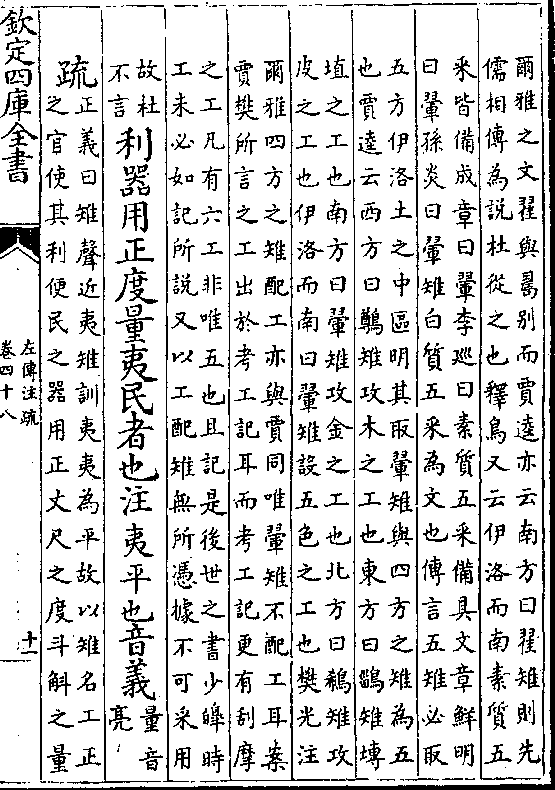 爾雅之文翟與鷮別而賈逵亦云南方曰翟雉則先
儒相傳為說杜從之也釋鳥又云伊洛而南素質五
采皆備成章曰翬李廵曰素質五采備具文章鮮明
曰翬孫炎曰翬雉白質五采為文也傳言五雉必取
五方伊洛土之中區明其取翬雉與四方之雉為五
也賈逵云西方曰鷷雉攻木之工也東方曰鶅雉摶
埴之工也南方曰翬雉攻金之工也北方曰鵗雉攻
皮之工也伊洛而南曰翬雉設五色之工也樊光注
爾雅四方之雉配工亦與賈同唯翬雉不配工耳案
賈樊所言之工出於考工記耳而考工記更有刮摩
之工凡有六工非唯五也且記是後世之書少皥時
工未必如記所說又以工配雉無所憑據不可采用
故杜
不言
利器用正度量夷民者也注夷平也音義
量音
亮
疏
正義曰雉聲近夷雉訓夷夷為平故以雉名工正
之官使其利便民之器用正丈尺之度斗斛之量
欽定四庫全書
左傳注疏
卷四十八
十一